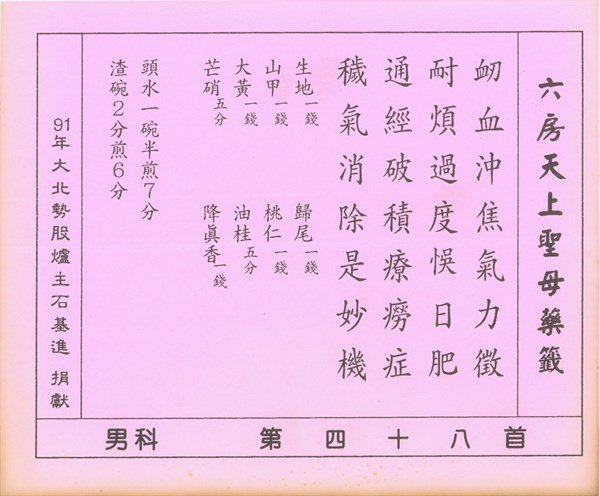 六房天上聖母藥籤
衂血沖焦氣力徵
耐煩過度悞日肥
通經破積療癆症
穢氣消除是妙機
生地一錢 歸尾一錢
山甲一錢 桃仁一錢
大黃一錢 油桂五分
芒硝五分 降眞香一錢
頭水一碗半煎7分
渣碗2分煎6分
91年大北勢股爐主石基進 捐獻
男科 第四十八首